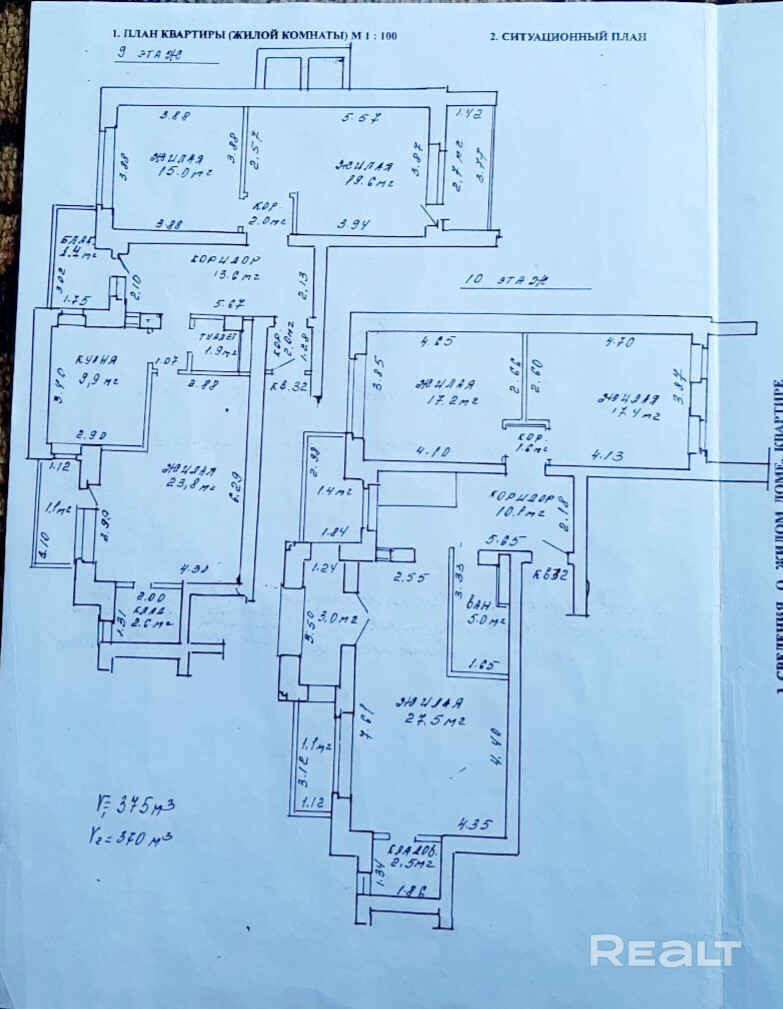 1. ПЛАН КВАРТИРЫ (ЖИЛОЙ КОМНАТЫ) М 1 : 100
2. СИТУАЦИОННЫЙ ПЛАН
9 ЭТАЖ
3.88
5.57
1.42
3.88
ЖИЛАЯ
15.0 м2
3.88
2.57
ЖИЛАЯ
19.6 м2
3.87
2,7 м2
3.77
КОР.
2.0 м2
3.88
3.94
БАЛК.
1.4 м2
3.02
1.75
2.10
КОРИДОР
13.6 м2
5.67
2.13
10 ЭТАЖ
ТУАЛЕТ
1.9 м2
КОР.
2.0 м2
1.28
КВ.32
КУХНЯ
9,9 м2
3.40
2.90
1.07
3.88
1.12
1,1 м2
3.10
ЖИЛАЯ
23,8 м2
6.29
3.90
4.38
2.00
КЛАД.
2.6 м2
1.31
4.65
4.70
3.85
ЖИЛАЯ
17.2 м2
2.66
2.60
ЖИЛАЯ
17.4 м2
3.87
4.10
КОР.
1.6 м2
4.13
2.98
1.4 м2
1.84
КОРИДОР
10.1 м2
2.18
5.65
КВ32
1.24
2.55
3.33
3,0 м2
3.50
ВАН.
5.0 м2
1.65
ЖИЛАЯ
27.5 м2
7.61
4.40
1,1 м2
3.12
1.12
4.35
КЛАДОВ.
2,5 м2
1.34
1.86
V1= 375 м3
V2 = 370 м3
3. СВЕДЕНИЯ О ЖИЛОМ ДОМЕ, КВАРТИРЕ
REALT